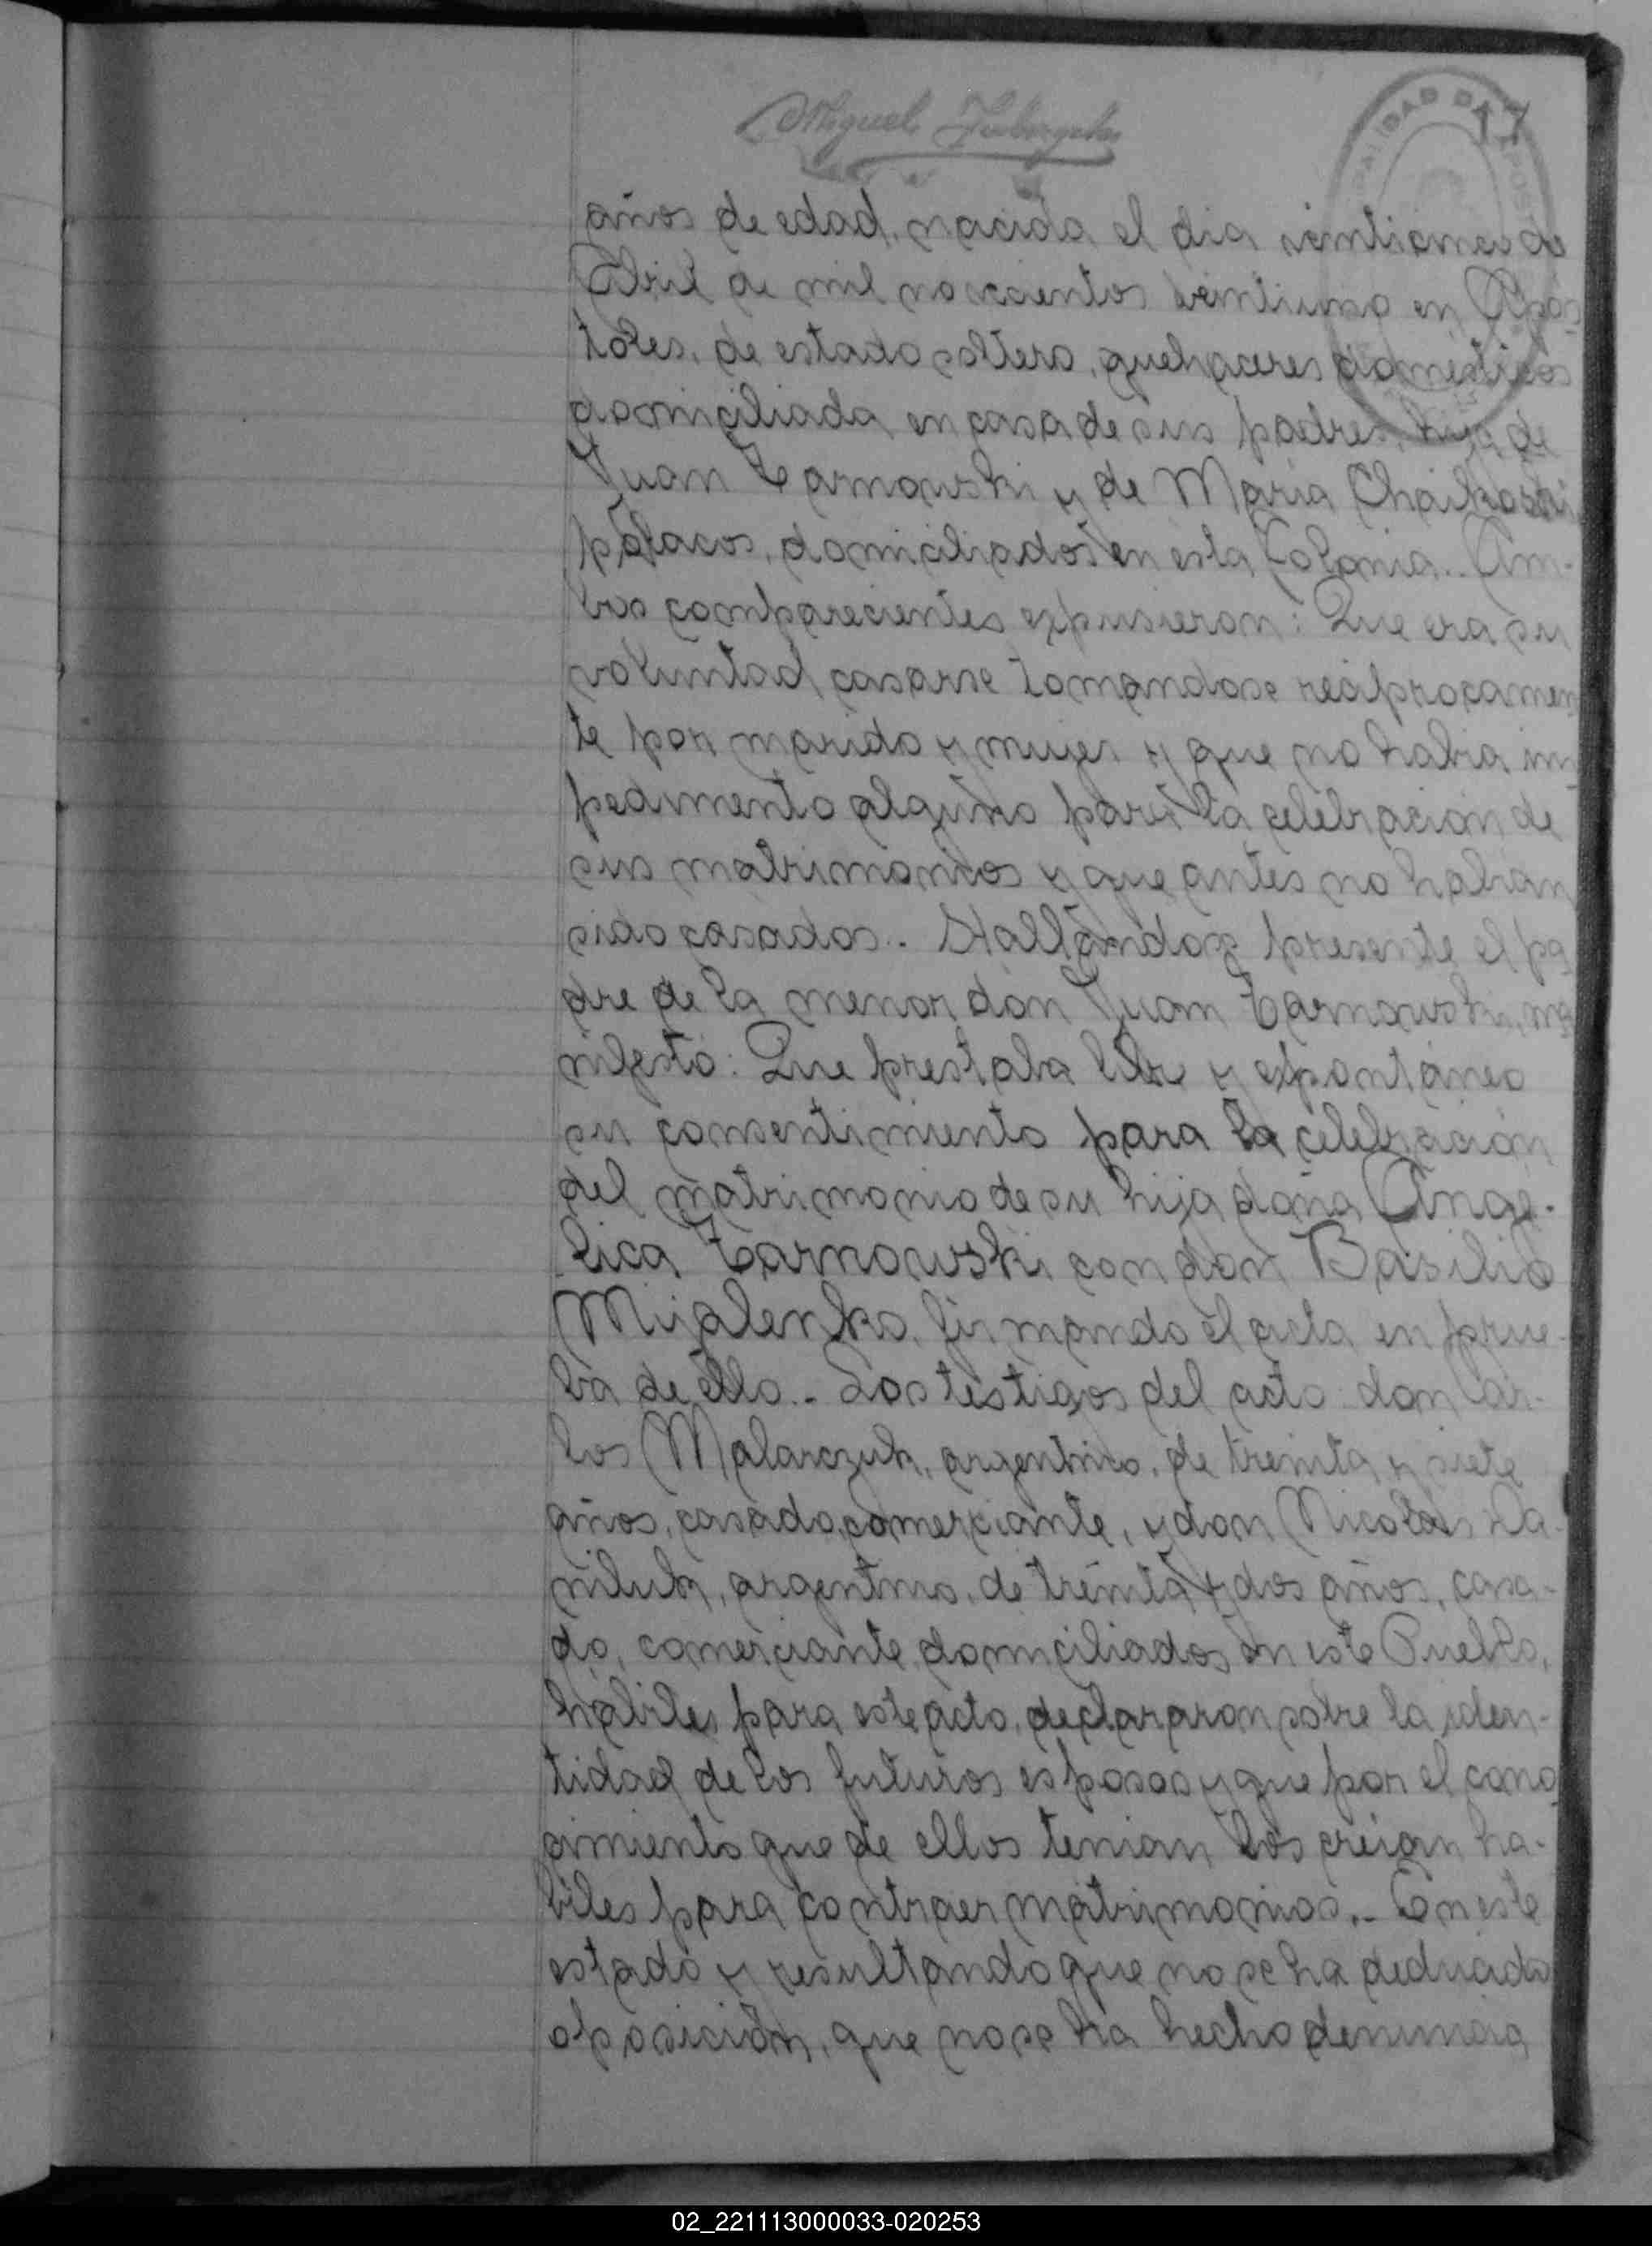 Miguel
17
años de edad, nacida el dia veinticinco de
Abril de mil novecientos veintiuno en Após-
toles, de estado soltera, quehaceres domésticos
domiciliada en casa de sus padres, hija de
Juan Tarnowski y de Maria Chaikoski
polacos, domiciliados en esta Colonia.. Am-
bos comparecientes expusieron: Que era su
voluntad casarse tomandose reciprocamen
te por marido y mujer y que no habia im
pedimento alguno para la celebracion de
sus matrimonios y que antes no habian
sido casados.. Hallandose presente el pa
dre de la menor don Juan Tarnowski, ma
nifestó: Que prestaba libre y espontáneo
su consentimiento para la celebracion
del matrimonio de su hija doña Ange-
lica Tarnowski con don Basilio
Mijalenko, firmando el acta en prue-
ba de ello.. Los testigos del acto don Car-
los Malarczuk, argentino, de treinta y siete
años, casado, comerciante, y don Nicolás Da-
niluk, argentino, de treinta y dos años, casa-
do, comerciante, domiciliados en este Pueblo,
hábiles para este acto, declararon sobre la iden-
tidad de los futuros esposos y que por el cono
cimiento que de ellos tenian los creian ha-
biles para contraer matrimonios.- En este
estado y resultando que no se ha deducido
oposición, que no se ha hecho denuncia
02_221113000033-020253